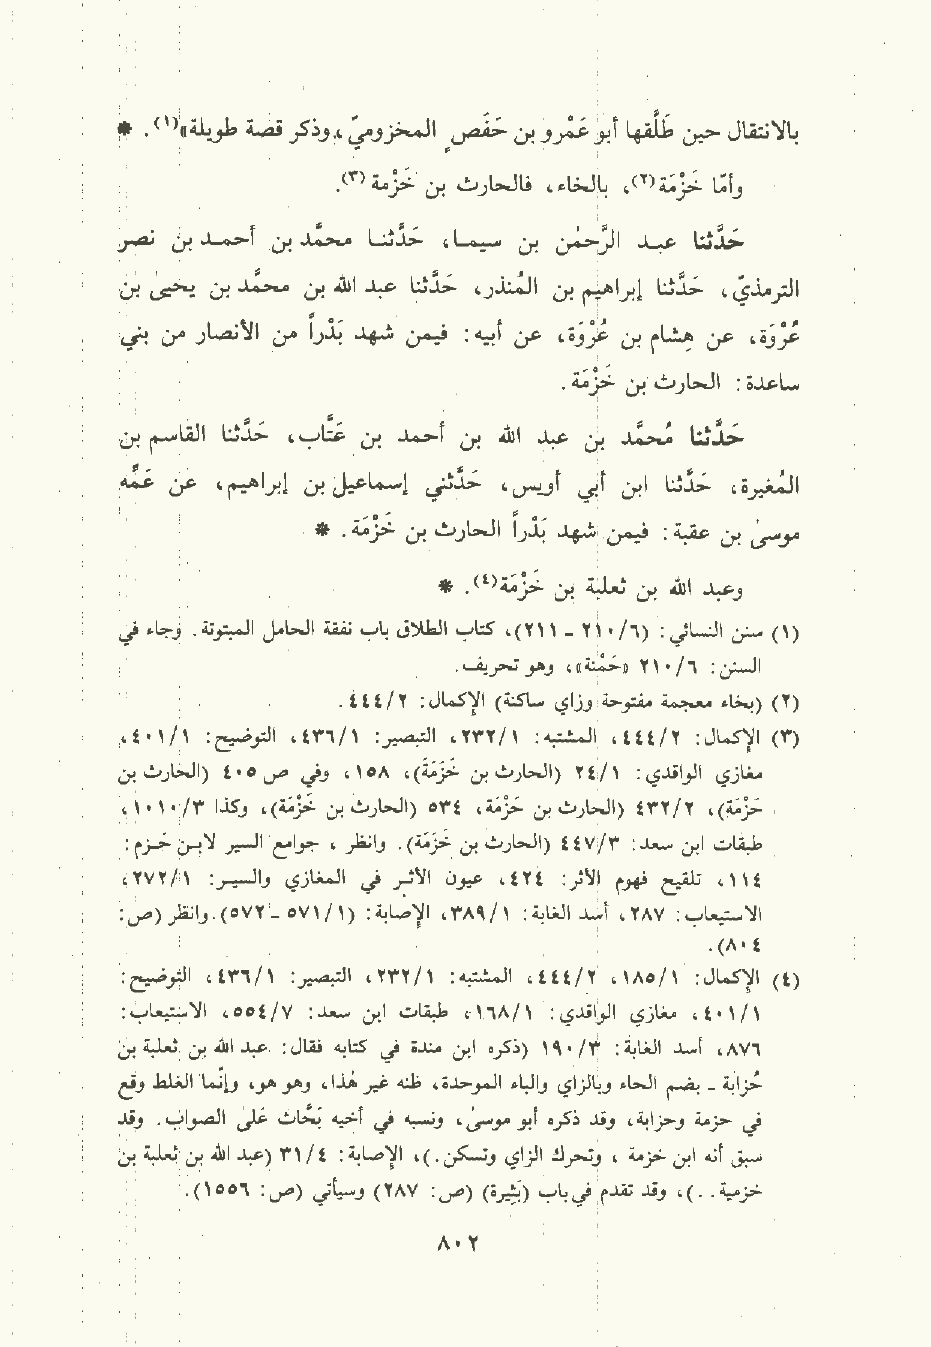 بالانتقال حين طلَّقها أبو عَمْرو بن حَفَصٍ المخزوميّ، وذكر قصة طويلة»(١). *
وأمّا خَزْمَة(٢)، بالخاء، فالحارث بن خَزْمة(٣).
حَدَّثنا عبد الرَّحمٰن بن سيما، حَدَّثنا محمَّد بن أحمد بن نصر
الترمذيّ، حَدَّثنا إبراهيم بن المُنذر، حَدَّثنا عبد الله بن محمَّد بن يحيىٰ بن
عُرْوَة، عن هِشام بن عُرْوَة، عن أبيه: فيمن شهد بَدْراً من الأنصار من بني
ساعدة: الحارث بن خَزْمَة.
حَدَّثنا مُحمَّد بن عبد الله بن أحمد بن عَتَّاب، حَدَّثنا القاسم بن
المُغيرة، حَدَّثنا ابن أبي أويس، حَدَّثني إسماعيل بن إبراهيم، عن عَمِّه
موسىٰ بن عقبة: فيمن شهد بَدْراً الحارث بن خَزْمَة. *
وعبد الله بن ثعلبة بن خَزْمَة(٤). *
(١) سنن النسائي: (٦/ ٢١٠ - ٢١١)، كتاب الطلاق باب نفقة الحامل المبتوتة. وجاء في
السنن: ٦/ ٢١٠ «حَمْنة»، وهو تحريف.
(٢) (بخاء معجمة مفتوحة وزاي ساكنة) الإكمال: ٢/ ٤٤٤.
(٣) الإكمال: ٢/ ٤٤٤، المشتبه: ١/ ٢٣٢، التبصير: ١/ ٤٣٦، التوضيح: ١/ ٤٠١،
مغازي الواقدي: ١/ ٢٤ (الحارث بن خَزَمَة)، ١٥٨، وفي ص ٤٠٥ (الحارث بن
خَزْمَة)، ٢/ ٤٣٢ (الحارث بن خَزْمَة، ٥٣٤ (الحارث بن خَزْمَة)، وكذا ٣/ ١٠١٠،
طبقات ابن سعد: ٣/ ٤٤٧ (الحارث بن خَزَمَة). وانظر، جوامع السير لابن حَزم:
١١٤، تلقيح فهوم الأثر: ٤٢٤، عيون الأثر في المغازي والسير: ١/ ٢٧٢،
الاستيعاب: ٢٨٧، أسد الغابة: ١/ ٣٨٩، الإصابة: (١/ ٥٧١ - ٥٧٢). وانظر (ص:
٨٠٤).
(٤) الإكمال: ١/ ١٨٥، ٢/ ٤٤٤، المشتبه: ١/ ٢٣٢، التبصير: ١/ ٤٣٦، التوضيح:
١/ ٤٠١، مغازي الواقدي: ١/ ١٦٨، طبقات ابن سعد: ٧/ ٥٥٤، الاستيعاب:
٨٧٦، أسد الغابة: ٣/ ١٩٠ (ذكره ابن مندة في كتابه فقال: عبد الله بن ثعلبة بن
خُزابة - بضم الخاء وبالزاي والباء الموحدة، ظنه غير هٰذا، وهو هو، وإنَّما الغلط وقع
في حزمة وحزابة، وقد ذكره أبو موسىٰ، ونسبه في أخيه بَحَّاث علىٰ الصواب. وقد
سبق أنه ابن خزمة، وتحرك الزاي وتسكن.)، الإصابة: ٤/ ٣١ (عبد الله بن ثعلبة بن
خزمية. .)، وقد تقدم في باب (بَثِيرة) (ص: ٢٨٧) وسيأتي (ص: ١٥٥٦).
٨٠٢